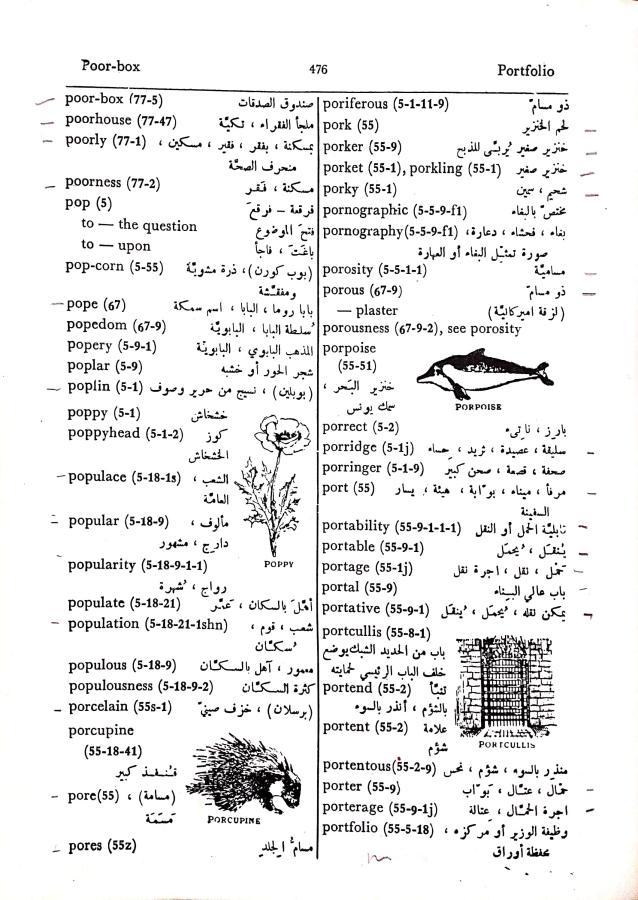 Poor-box 476 Portfolio
poor-box (77-5) صندوق الصدقات
poorhouse (77-47) ملجأ الفقراء ، تكيَّة
poorly (77-1) بمسكنة ، بفقر ، فقير ، مسكين ،
منحرف الصحَّة
poorness (77-2) مسكنة ، فَقر
pop (5) فرقعة – فرقعَ
to — the question فتحَ الموضوع
to — upon باغتَ ، فاجأ
pop-corn (5-55) (بوب كورن)، ذرة مشويَّة
ومفقَّشة
pope (67) بابا روما ، البابا ، اسم سمكة
popedom (67-9) سُلطة البابا ، البابويَّة
popery (5-9-1) المذهب البابوي ، البابويَّة
poplar (5-9) شجر الحور أو خشبه
poplin (5-1) (بوبلين) ، نسيج من حرير وصوف
poppy (5-1) خشخاش
poppyhead (5-1-2) كوز
الخشخاش
POPPY
populace (5-18-1s) الشعب ،
العامَّة
popular (5-18-9) مألوف ،
دارج ، مشهور
popularity (5-18-9-1-1)
رواج ، شُهرة
populate (5-18-21) أهَّل بالسكان ، عمَّر
population (5-18-21-1shn) شعب ، قوم ،
سُكَّان
populous (5-18-9) معمور ، آهل بالسكَّان
populousness (5-18-9-2) كثرة السكَّان
porcelain (55s-1) (برسلان) ، خزف صينيّ
porcupine
(55-18-41)
قنفذ كبير
PORCUPINE
pore(55) (مسامة) ،
pores (55z) مسامُّ الجلد
poriferous (5-1-11-9) ذو مسامّ
pork (55) لحم الخنزير
porker (55-9) خنزير صغير يُربَّى للذبح
porket (55-1), porkling (55-1) خنزير صغير
porky (55-1) شحيم ، سمين
pornographic (5-5-9-f1) مختصّ بالبغاء
pornography(5-5-9-f1) بغاء ، فحشاء ، دعارة ،
صورة تمثِّل البغاء أو العهارة
porosity (5-5-1-1) مساميَّة
porous (67-9) ذو مسامّ
— plaster (لزقة اميركانيَّة)
porousness (67-9-2), see porosity
porpoise
(55-51)
خنزير البَحر ،
سمك يونس
PORPOISE
porrect (5-2) بارز ، ناتىء
porridge (5-1j) سليقة ، عصيدة ، ثريد ، حساء
porringer (5-1-9) صحفة ، قصعة ، صحن كبير
port (55) مرفأ ، ميناء ، بوَّابة ، هيئة ، يسار
السفينة
portability (55-9-1-1-1) قابليَّة الحمل أو النقل
portable (55-9-1) يُنقَل ، يُحمَل
portage (55-1j) حَمْل ، نقل ، اجرة نقل
portal (55-9) باب عالي البناء
portative (55-9-1) يمكن نقله ، يُحمَل ، يُنقَل
portcullis (55-8-1)
باب من الحديد الشبك يوضع
خلف الباب الرئيسي لحمايته
portend (55-2) تنبَّأ
بالشؤم ، أنذر بالسوء
portent (55-2) علامة
شؤم
PORTCULLIS
portentous(55-2-9) منذر بالسوء ، شؤم ، نحس
porter (55-9) حمَّال ، عتَّال ، بوَّاب
porterage (55-9-1j) اجرة الحمَّال ، عتالة
portfolio (55-5-18) وظيفة الوزير أو مركزه ،
محفظة أوراق